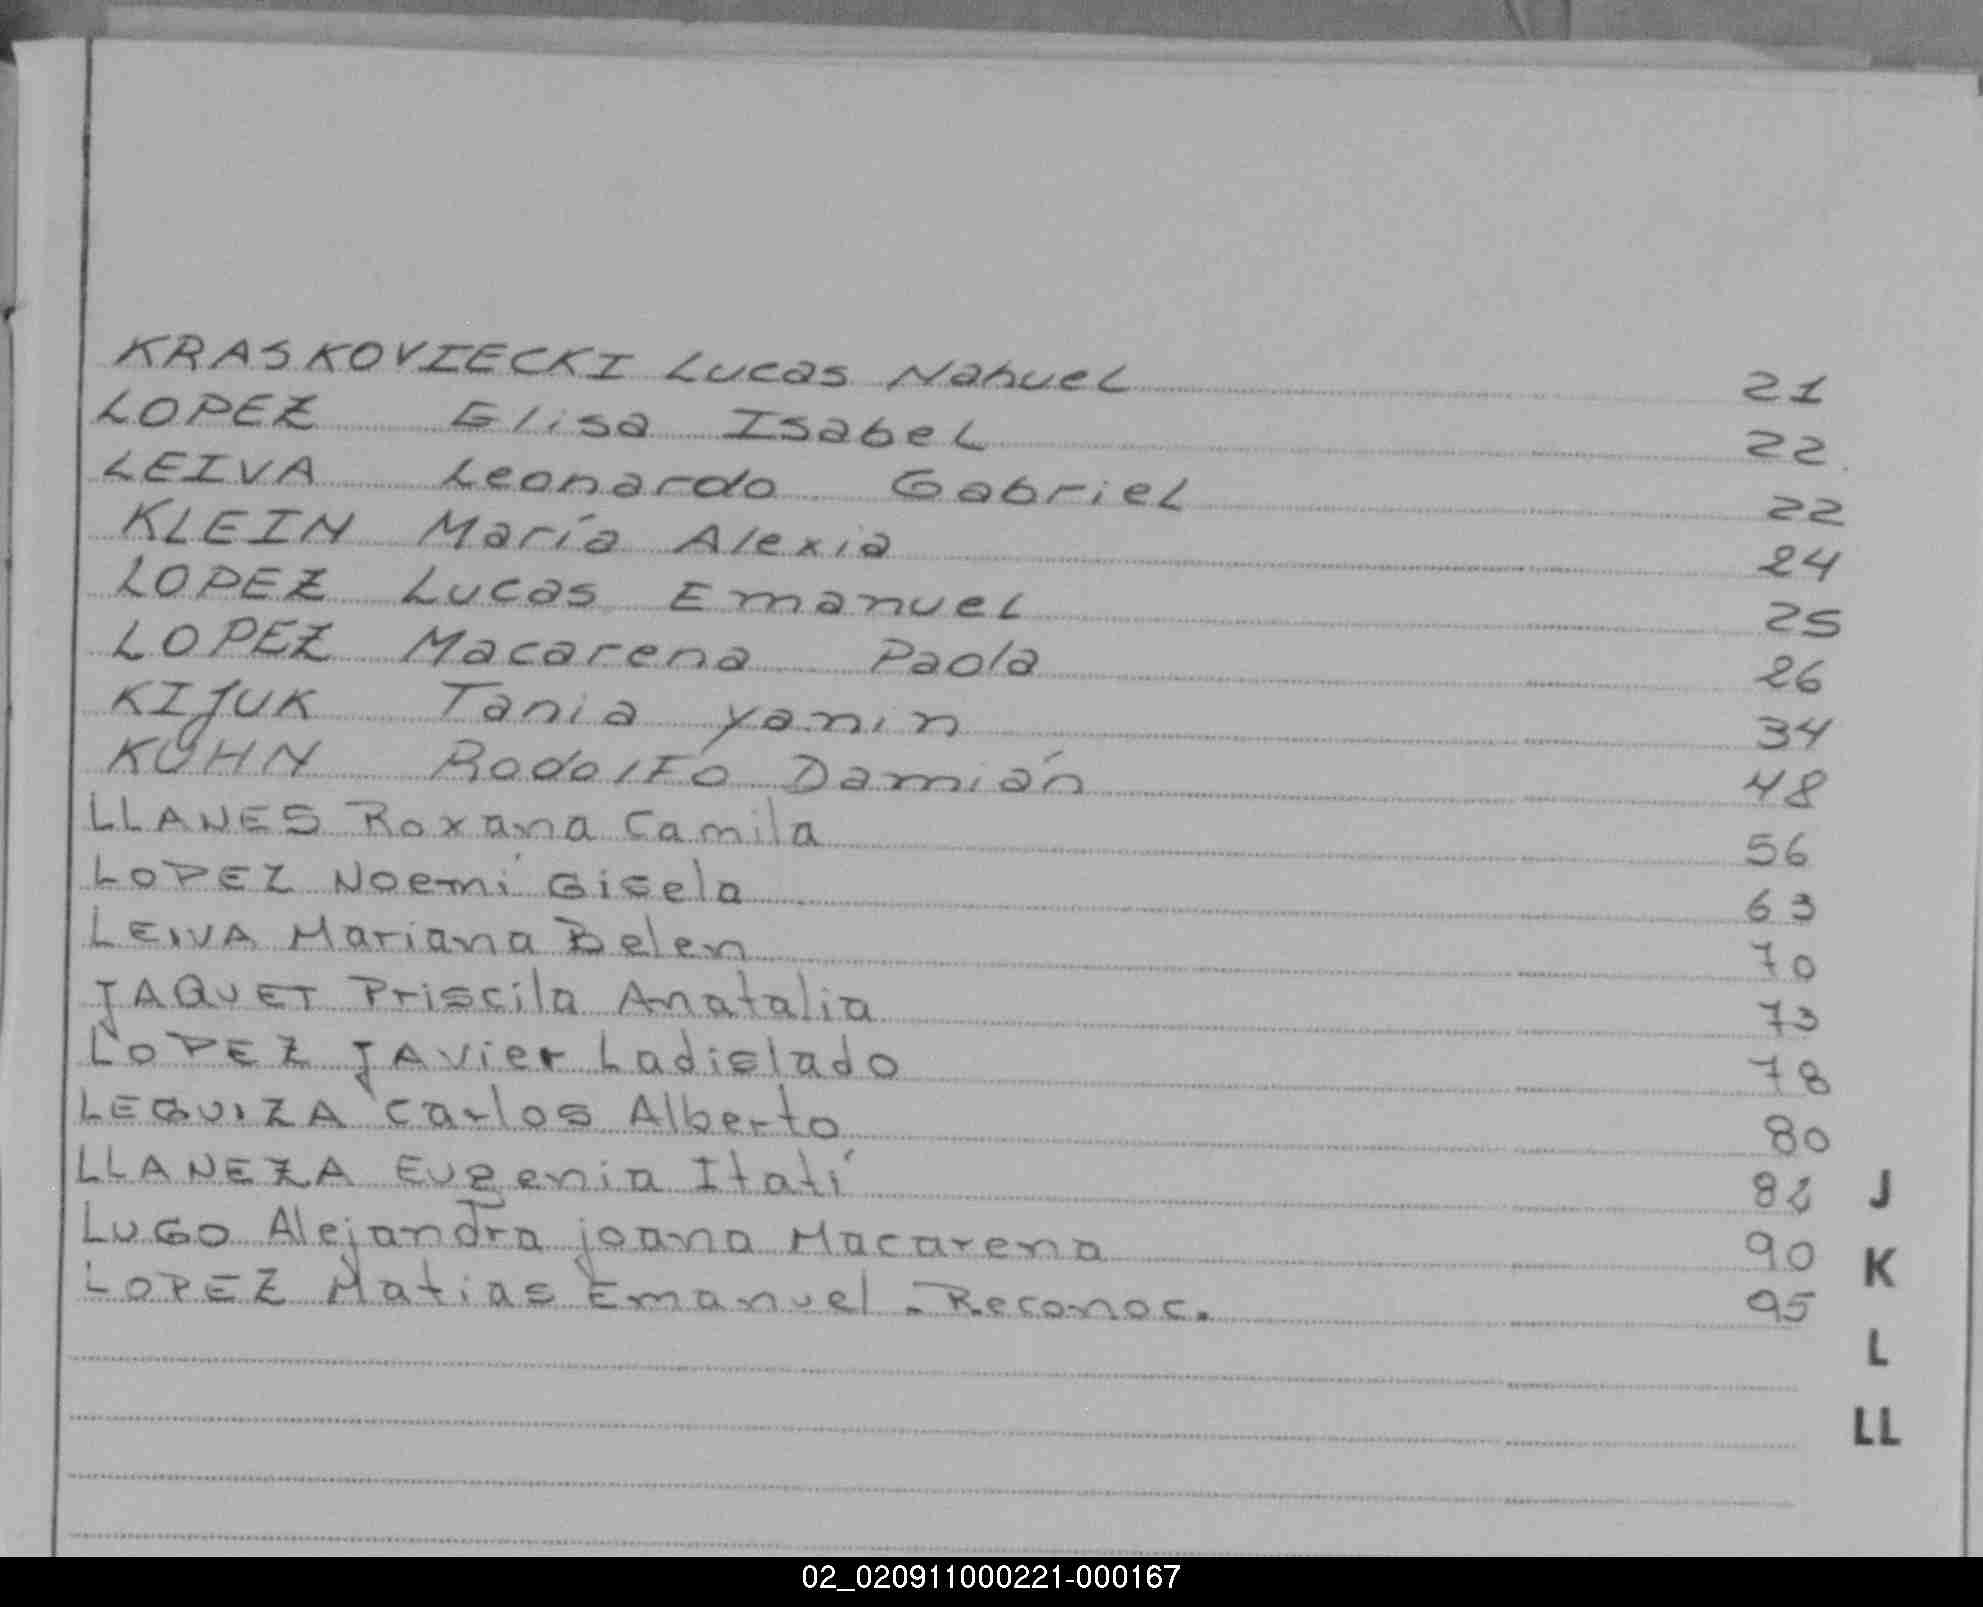 KRASKOVIECKI Lucas Nahuel 21
LOPEZ Elisa Isabel 22
LEIVA Leonardo Gabriel 22
KLEIN María Alexia 24
LOPEZ Lucas Emanuel 25
LOPEZ Macarena Paola 26
KIJUK Tania yanin 34
KUHN Rodolfo Damián 48
LLANES Roxana Camila 56
LOPEZ Noemí Gisela 63
LEIVA Mariana Belen 70
JAQUET Priscila Anatalia 73
LOPEZ JAvier Ladislado 78
LEGUIZA Carlos Alberto 80
LLANEZA Eugenia Itatí
LUGO Alejandra joana Macarena 90
LOPEZ Matias Emanuel - Reconoc. 95
J
K
L
LL
02_020911000221-000167